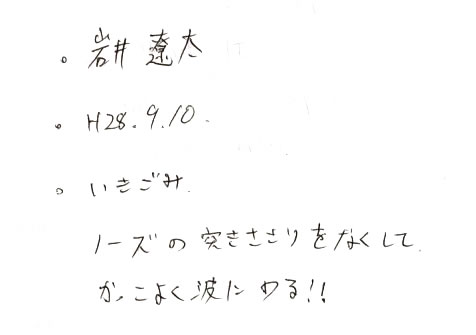 。岩井 遼太
。H28.9.10.
。いきごみ
ノーズの突きささりをなくして
かっこよく波にのる!!